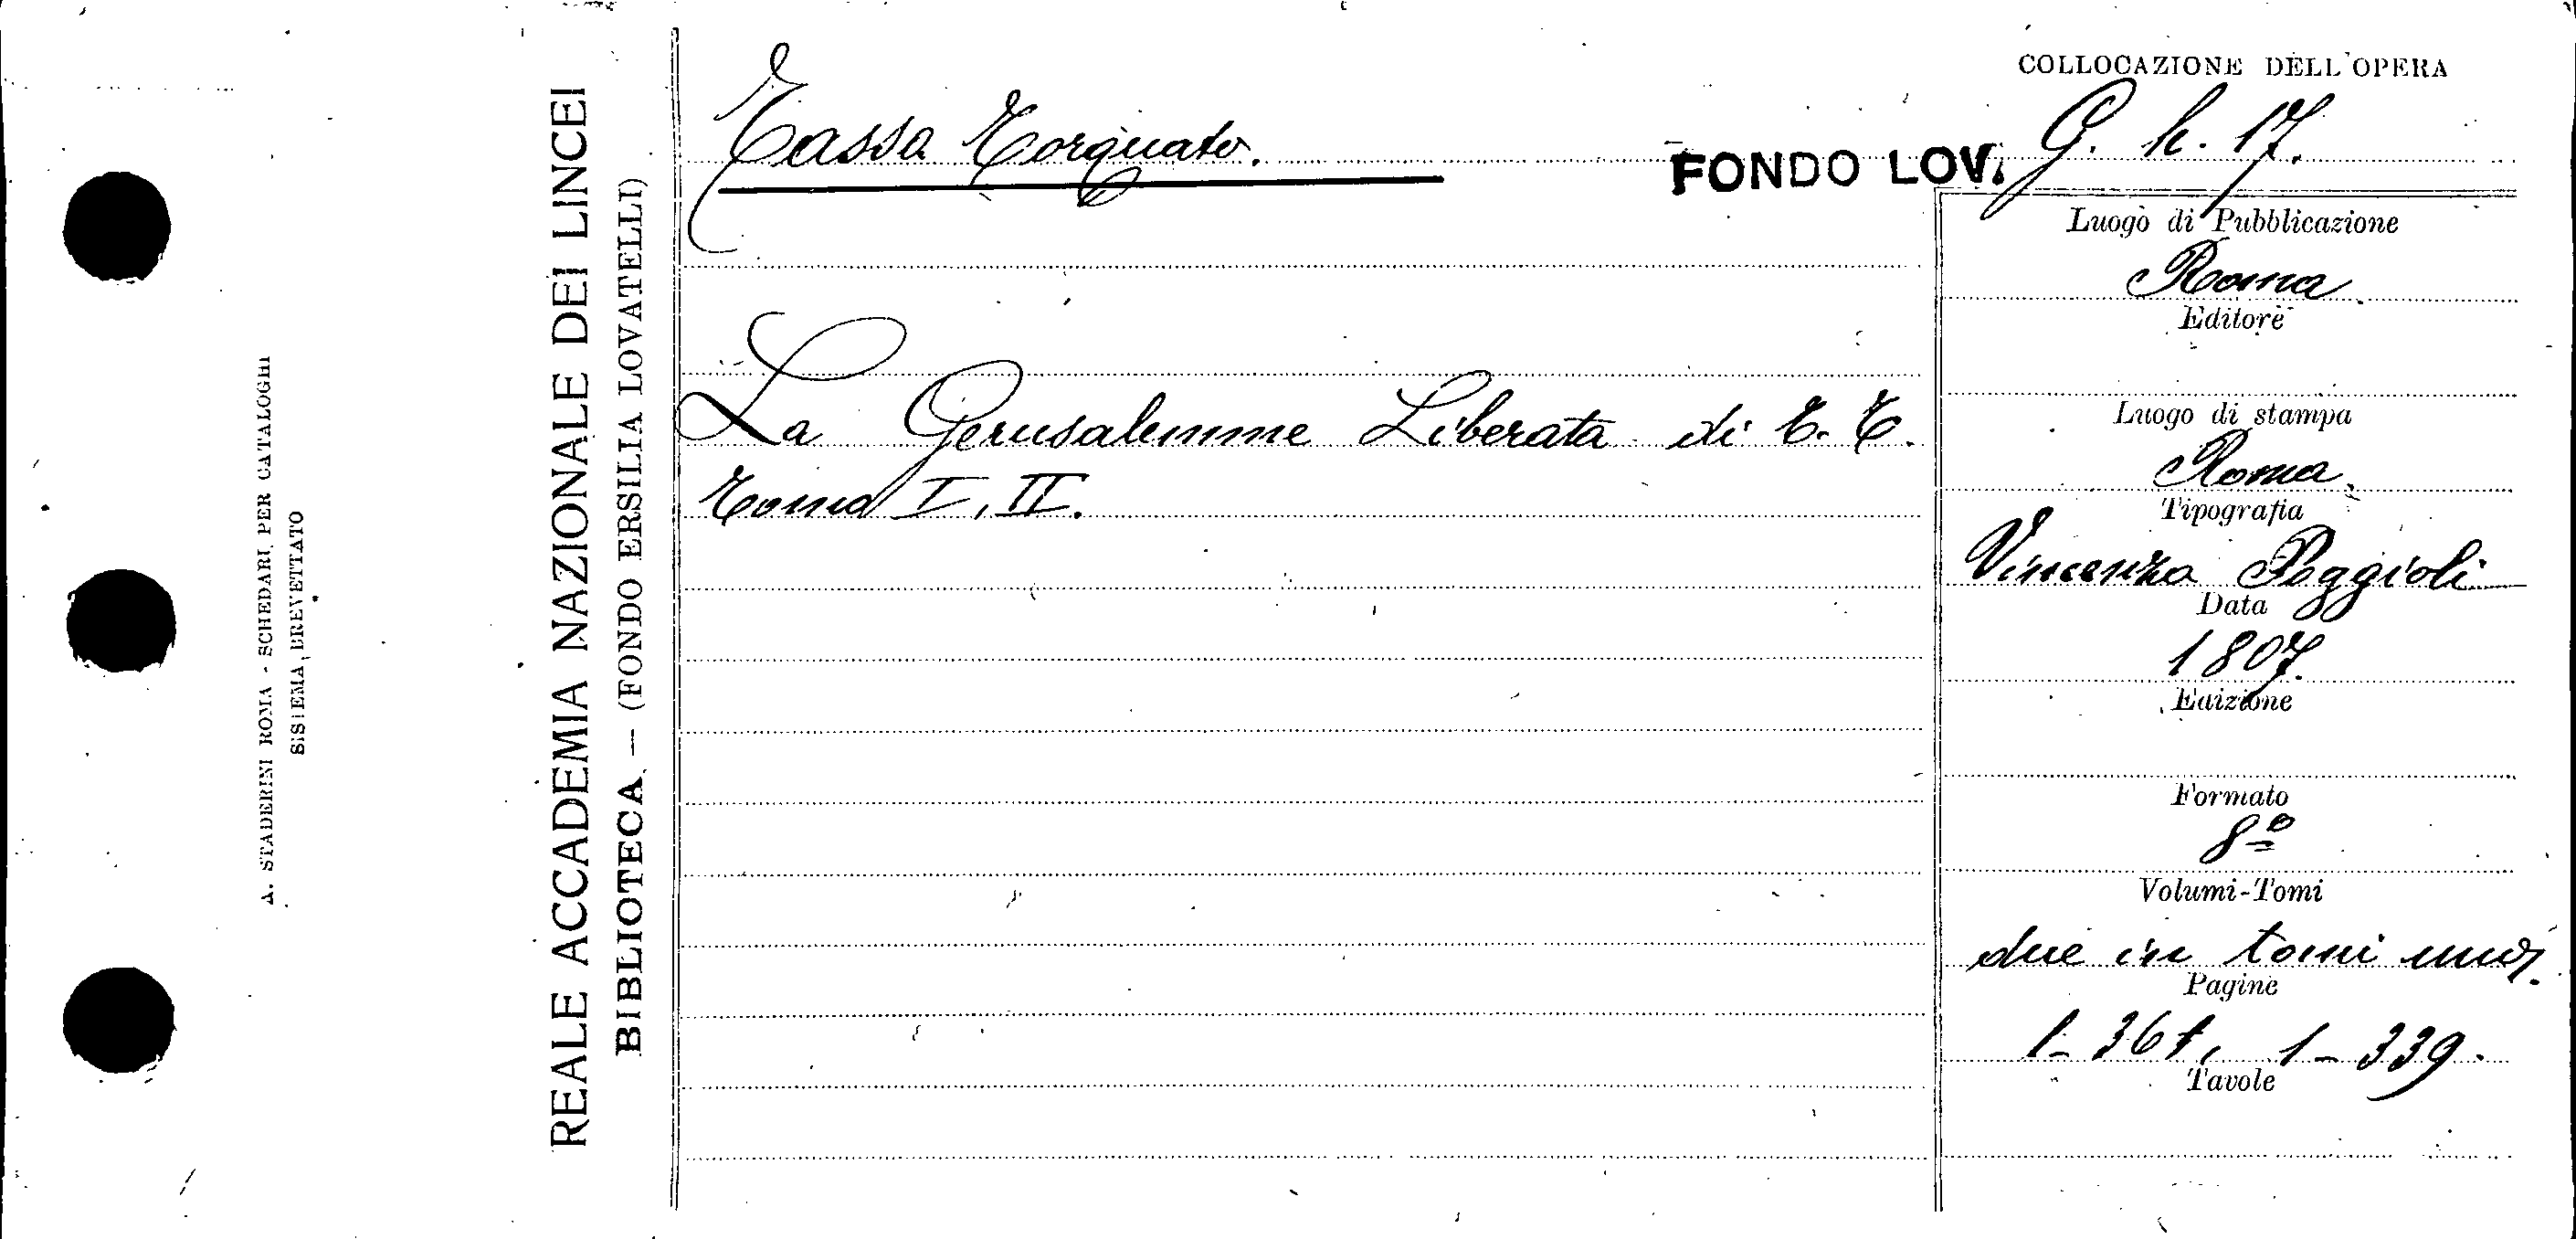 A. STADERINI ROMA - SCHEDARI PER CATALOGHI
SISTEMA BREVETTATO
REALE ACCADEMIA NAZIONALE DEI LINCEI
BIBLIOTECA — (FONDO ERSILIA LOVATELLI)
COLLOCAZIONE DELL'OPERA
Tasso Torquato.
FONDO LOV. G. h. 17.
La Gerusalemme Liberata di T. T.
Tomo I, II.
Luogo di Pubblicazione
Roma
Editore
Luogo di stampa
Roma
Tipografia
Vincenzo Poggioli
Data
1807.
Edizione
Formato
8º
Volumi-Tomi
due in tomi
Pagine
1-367, 1-339.
Tavole